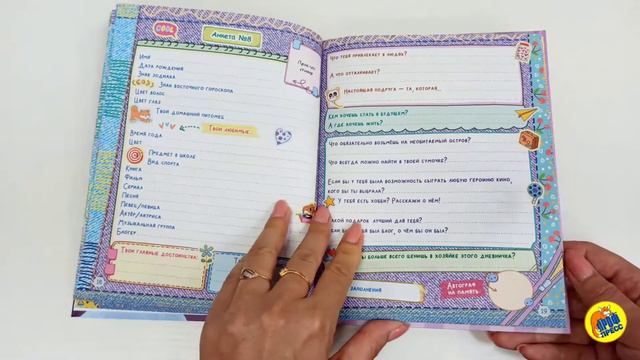 COOL
Анкета №8
Имя
Дата рождения
Знак зодиака
Знак восточного гороскопа
Цвет волос
Цвет глаз
Твой домашний питомец
Твои любимые...
Время года
Цвет
Предмет в школе
Вид спорта
Книга
Фильм
Сериал
Песня
Певец/певица
Актёр/актриса
Музыкальная группа
Блогер
Твои главные достоинства:
18
Что тебя привлекает в людях?
А что отталкивает?
Настоящая подруга — та, которая...
Кем хочешь стать в будущем?
А где хочешь жить?
Что обязательно возьмёшь на необитаемый остров?
Что всегда можно найти в твоей сумочке?
Если бы у тебя была возможность сыграть любую героиню кино,
кого бы ты выбрала?
У тебя есть хобби? Расскажи о нём!
Какой подарок лучший для тебя?
был блог, о чём бы он был?
больше всего ценишь в хозяйке этого дневничка?
заполнения
Автограф
на память
19
ПРОФ
ПРЕСС